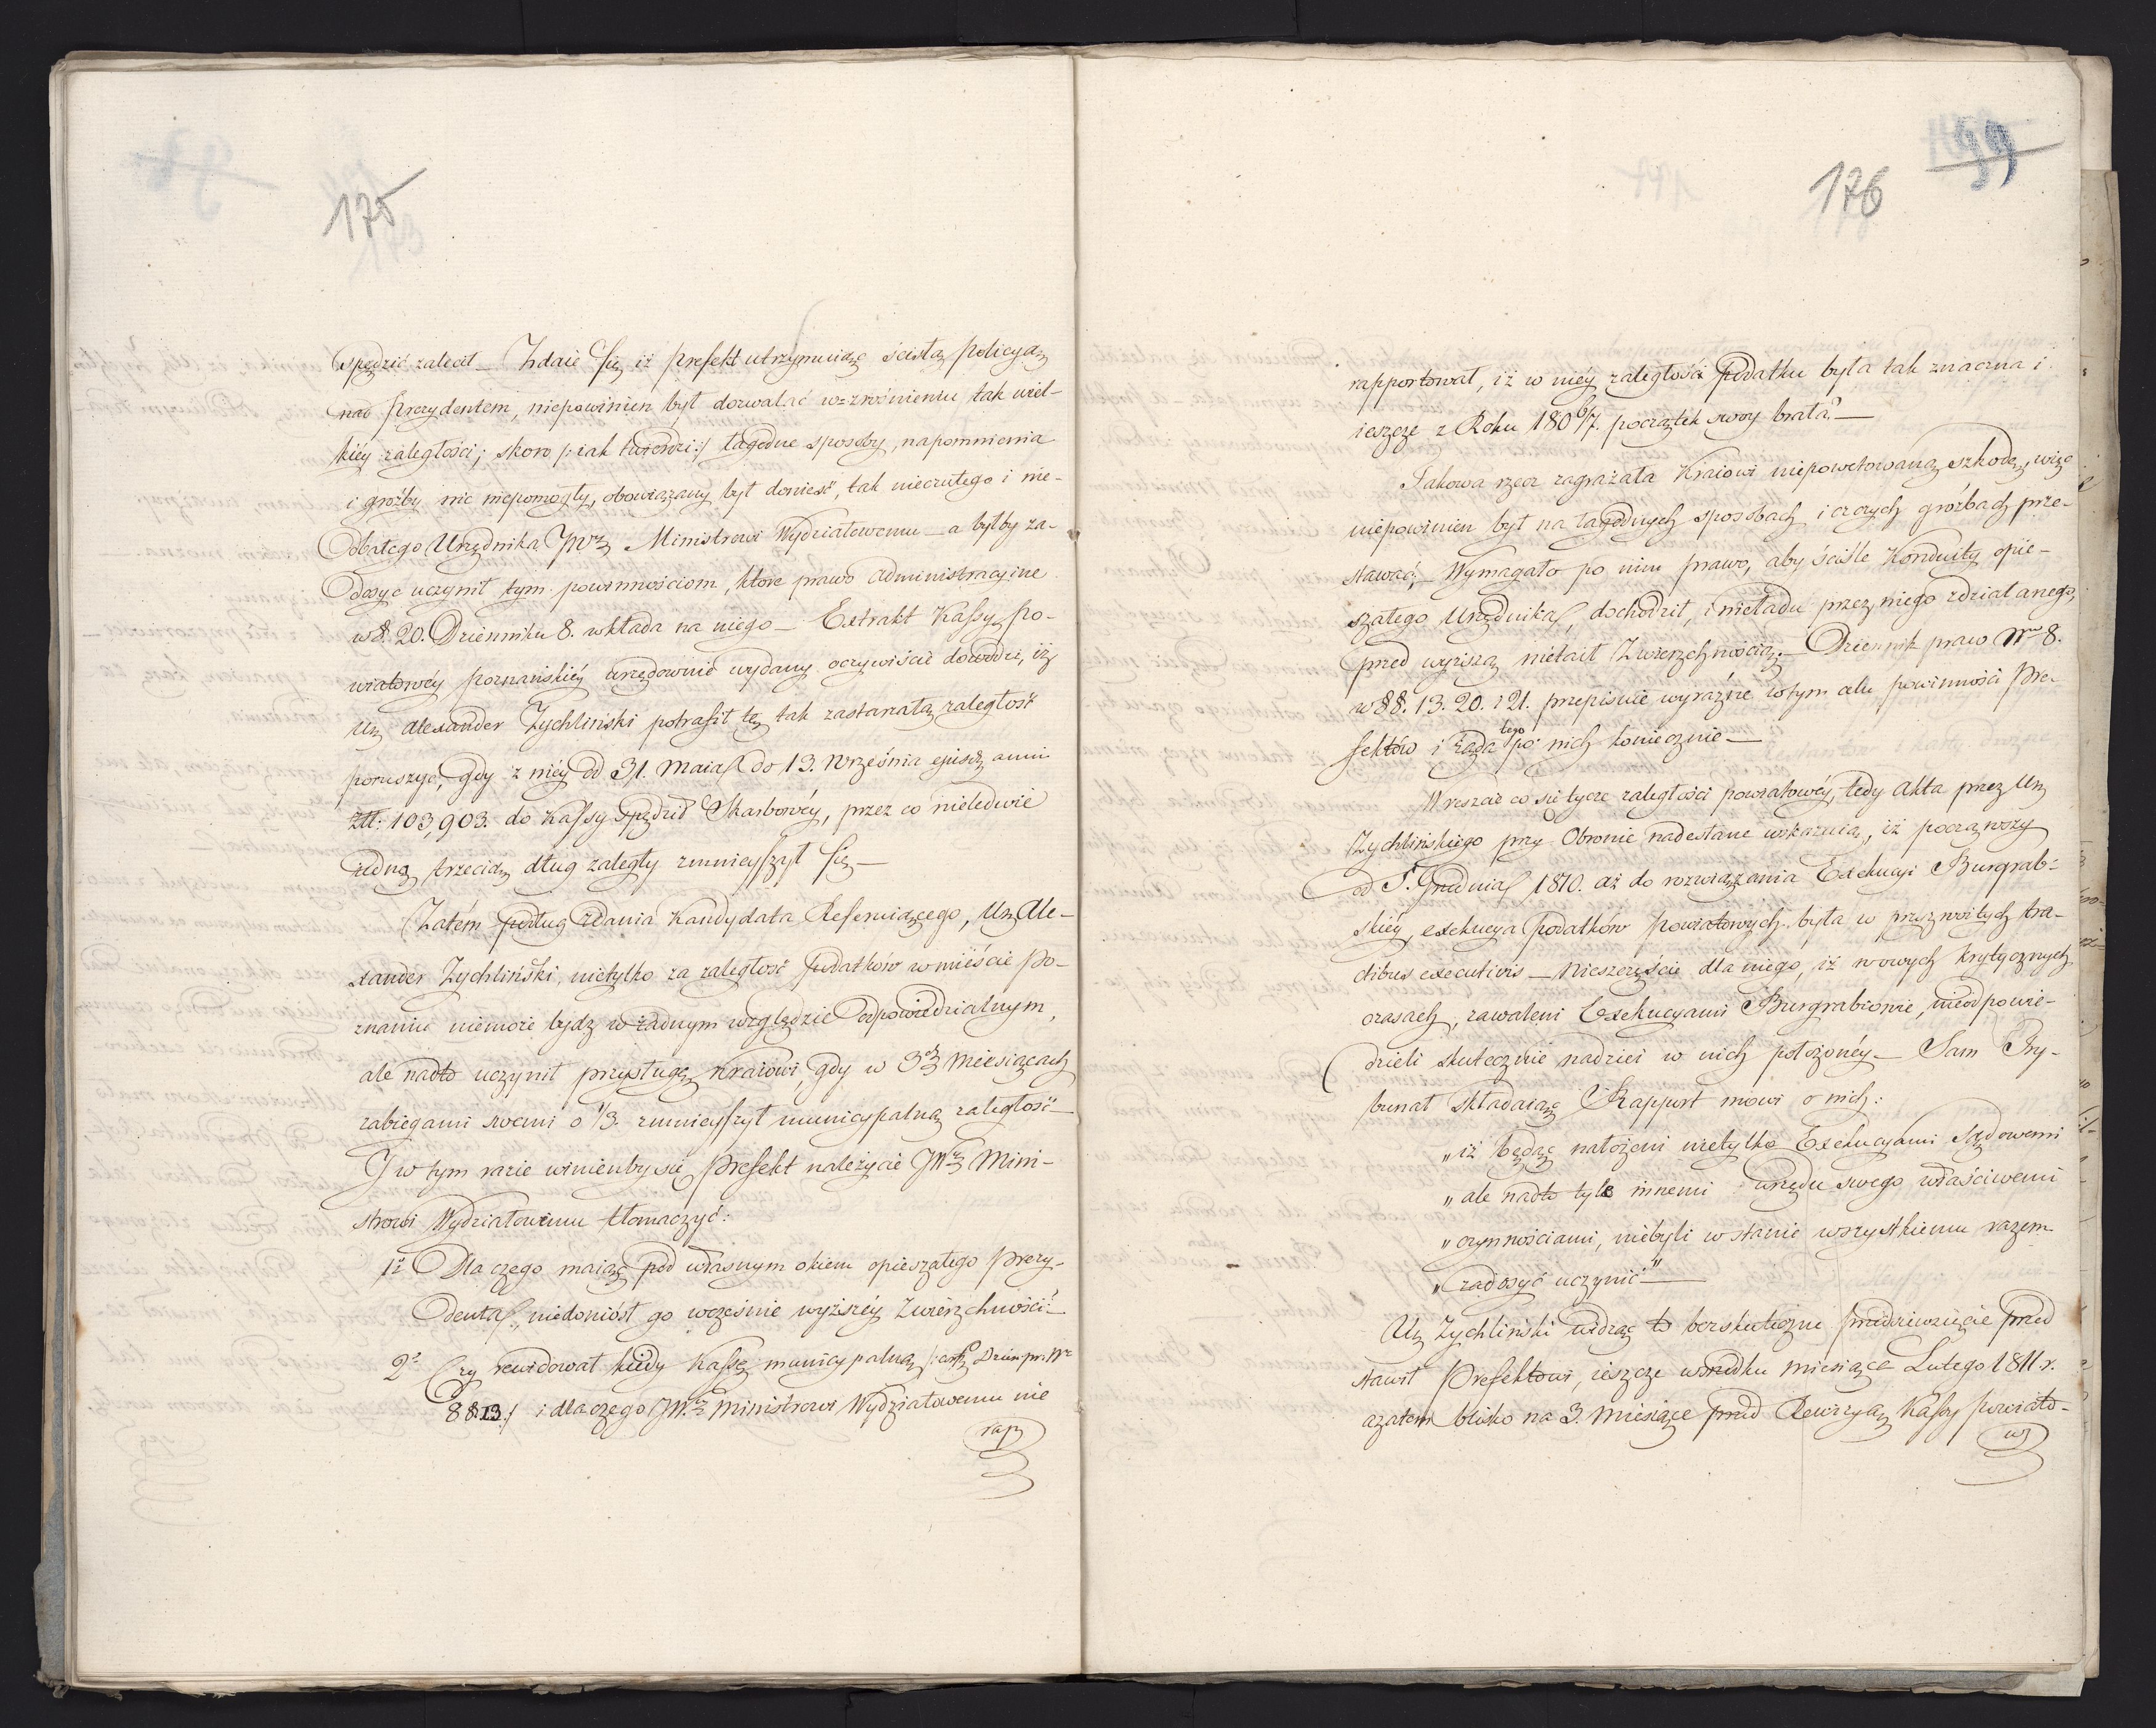 175
spędzić zalecił _ Zdaie się iż Prefekt utrzymuiąc ścisłą policyą
nad Prezydentem, niepowinien był dozwalać wzrośnieniu tak wiel-
kiéy zaległości; skoro /: iak twierdzi :/ łagodne sposoby, napomnienia
i groźby nic niepomogły, obowiązany był donieść, tak nieczułego i nie-
dbałego Urzędnika JWu Ministrowi Wydziałowemu _ a byłby za-
dosyć uczynił tym powinnościom, które prawo administracyine
w §. 20. Dzienniku 8. wkłada na niego _ Extrakt Kassy Po-
wiatowéy poznańskiéy urzędownie wydany oczywiście dowodzi, iż
Ur Alexander Zychliński potrafił tę tak zastarzałą zaległość
poruszyć, gdy z niéy od 31. Maia do 13. Września ejusd anni
Złł: 103,903. do Kassy spędził Skarbowéy, przez co nieledwie
iedną trzecią dług zaległy zmnieyszył się _
Zatém podług zdania Kandydata Referuiącego, Ur Ale-
xander Zychliński, nietylko za zaległość podatków w mieście Po-
znaniu niemoże bydz w żadnym względzie odpowiedzialnym,
ale nadto uczynił przysługę Kraiowi, gdy w 3ch Miesiącach
zabiegami swemi o 1/3. zmnieyszył municypalną zaległość _
I w tym razie winienby się Prefekt należycie JWu Mini-
strowi Wydziałowemu tłomaczyć:
1o Dlaczego maiąc pod własnym okiem opieszałego Prezy-
denta, niedoniósł go wcześnie wyższéy Zwierzchności _
2o Czy rewidował kiedy Kassę municypalną /: Dzien: pr: Nr
8 §. 13. :/ i dlaczego JWu Ministrowi Wydziałowemu nie
rap
99
176
rapportował, iż w niéy zaległość podatku była tak znaczna i
ieszcze z Roku 1806/7. początek swóy brała? _
Takowa rzecz zagrażała Kraiowi niepowetowaną szkodą, więc
niepowinien był na łagodnych sposobach i czczych groźbach prze-
stawać; _ Wymagało po nim prawo, aby ściśle Konduity opie-
szałego Urzędnika, dochodził, i nieładu przez niego zdziałanego,
przed wyższą nietaił Zwierzchnością. _ Dziennik praw Nro 8.
w §§. 13. 20. i 21. przepisuie wyraźnie w tym celu powinności Pre-
fektów i żąda tego po nich koniecznie _
Wreszcie co się tycze zaległości powiatowéy, tedy Akta przez Ur
Zychlińskiego przy Obronie nadesłane wskazuią, iż począwszy
od 5. Grudnia 1810. aż do rozwiązania Exekucyi Burgrab-
skiéy, exekucya podatków powiatowych była w przyzwoitych tra-
ctibus executivis _ Nieszczęście dla niego, iż w owych krytycznych
czasach, zawaleni Exekucyami Burgrabiowie, nieodpowie-
dzieli skutecznie nadziei w nich położonéy _ Sam Try-
bunał składaiąc Rapport mówi o nich:
„ iż będąc nałożeni nietylko Exekucyami Sądowemi
„ ale nadto tyle innemi urzędu swego właściwemi
„ czynnościami, niebyli w stanie wszystkiemu razem
„ zadosyć uczynić " _
Ur Zychliński widząc to bezskuteczne przedsięwzięcie przed
stawił Prefektowi, ieszcze w środku miesiąca Lutego 1811 r.
a zatem blisko na 3. miesiące przed Rewizyą Kassy powiato-
wy